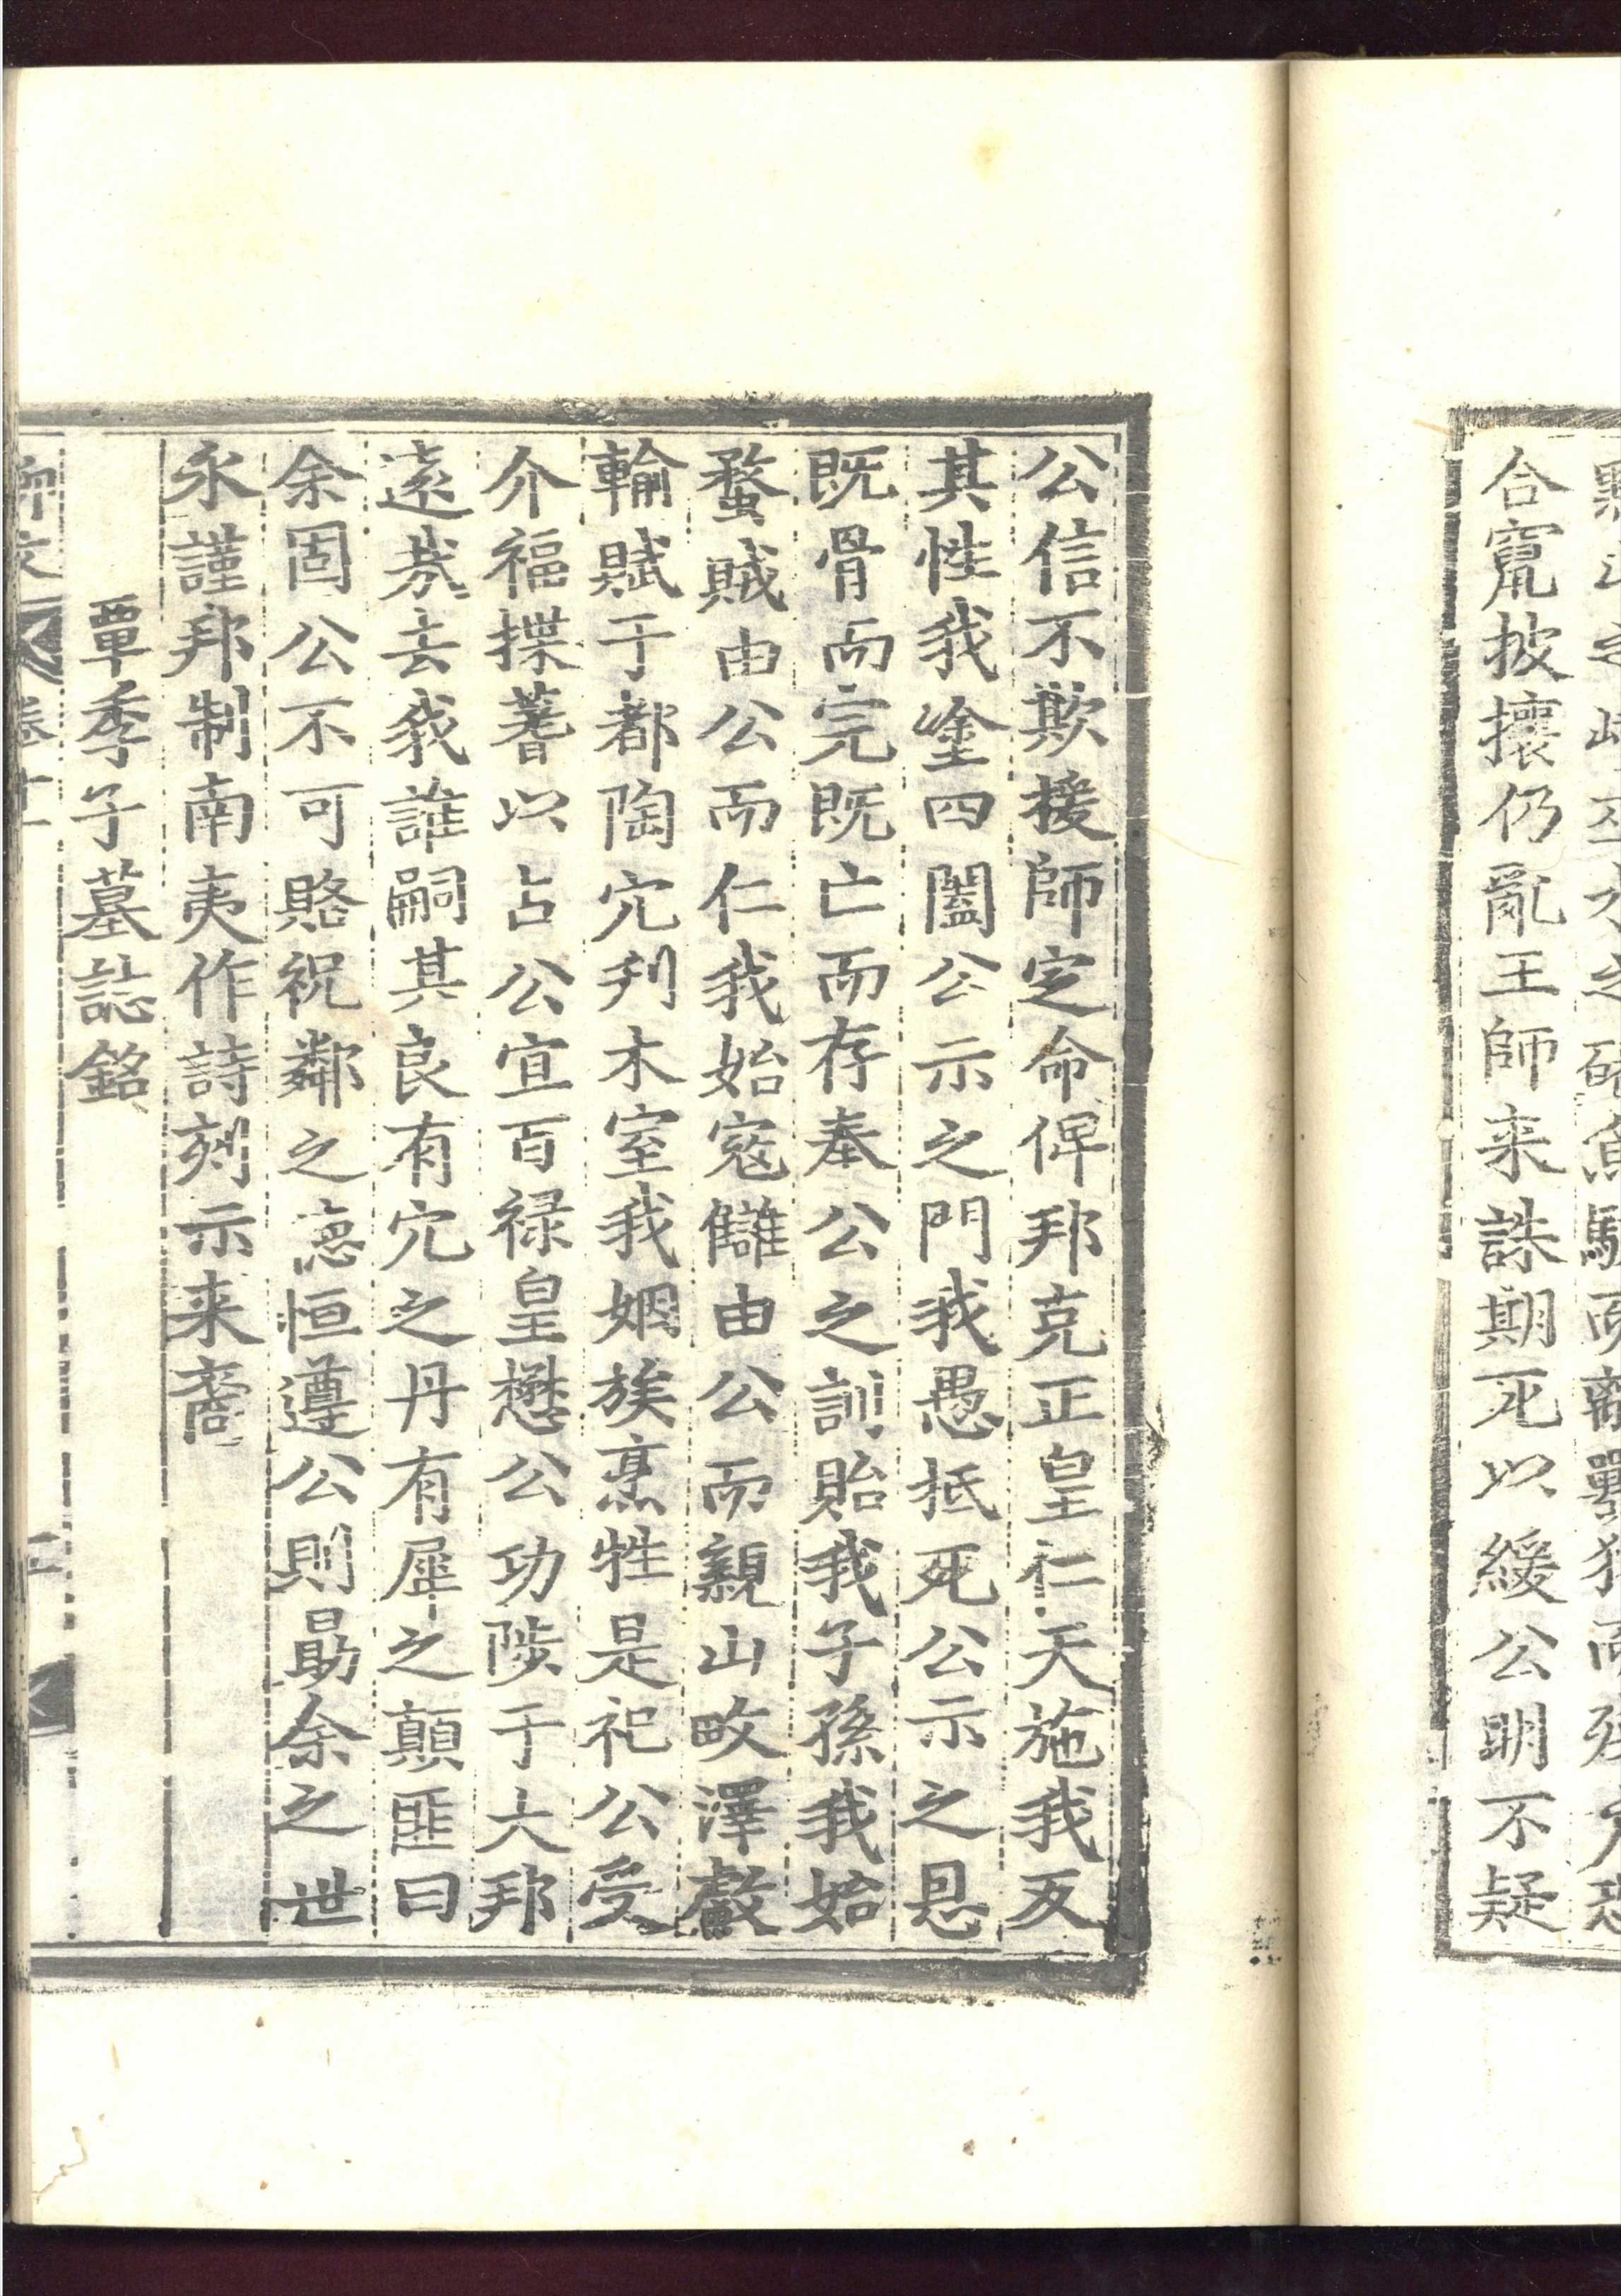 合竄披攘仍亂王師来誅期死以緩公明不疑
公信不欺援師定命俾邦克正皇仁天施我反
其性我塗四闔公示之門我愚抵死公示之恩
既骨而完既亡而存奉公之訓貽我子孫我始
蝥賊由公而仁我始寇讎由公而親山畋澤䱷
輸賦于都陶穴刋木室我姻族烹牲是祀公受
介福揲蓍以占公宜百禄皇懋公功陟于大邦
逺㢤去我誰嗣其良有穴之丹有犀之顛匪曰
余固公不可賂祝鄰之德恒遵公則勗余之世
永謹邦制南夷作詩刻示来裔
覃季子墓誌銘